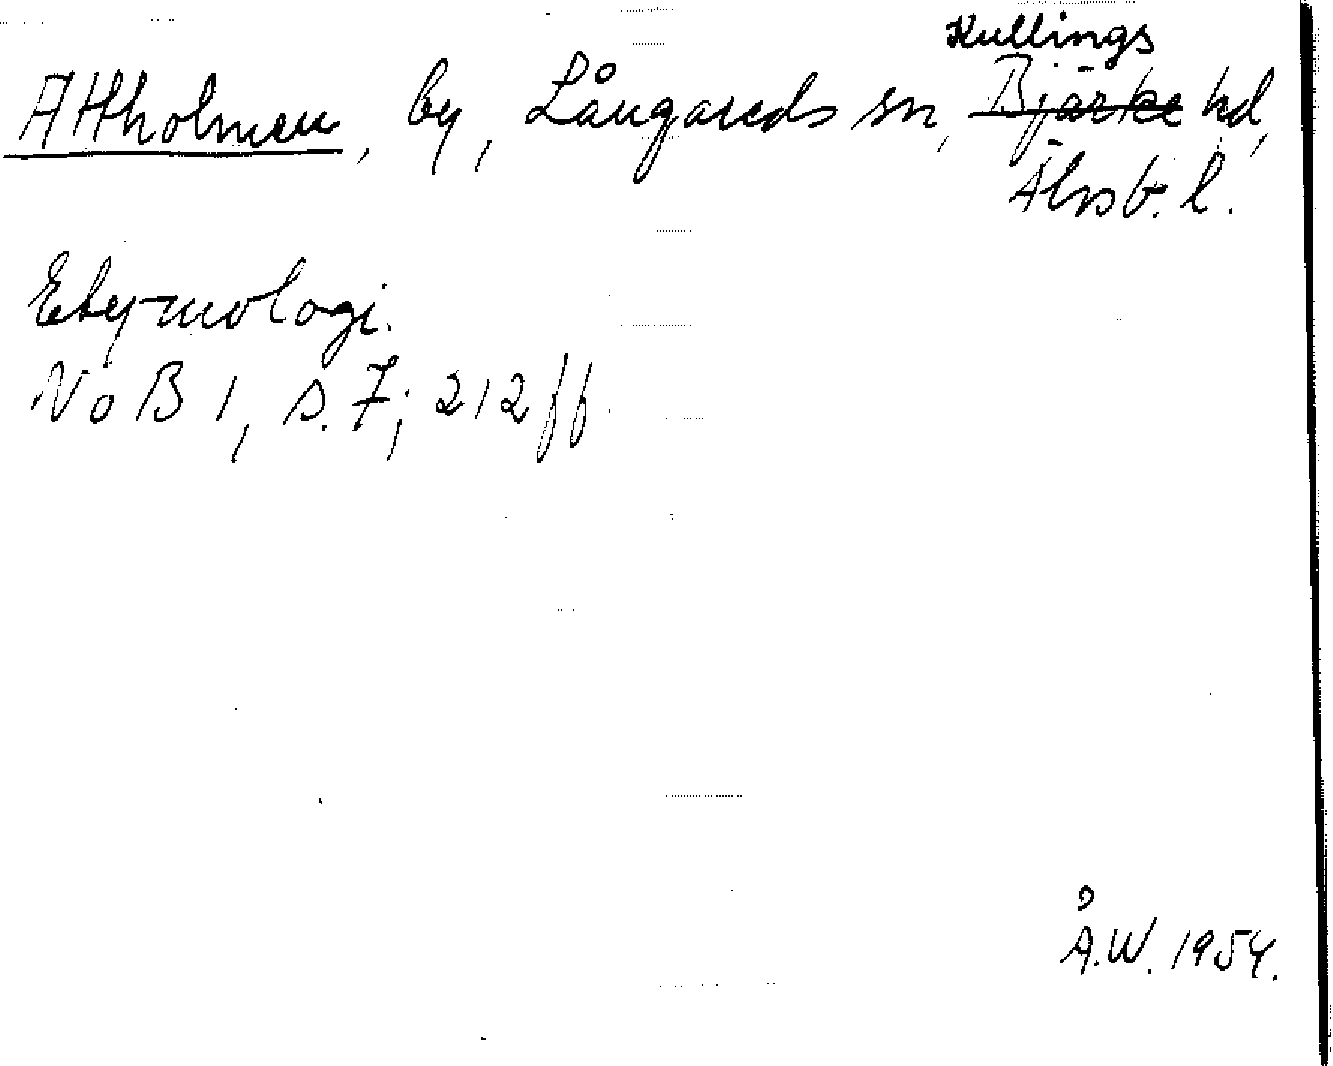 Kullings
Attholmen, by, Långareds sn, Bjärke hd,
Älvsb. l.
Etymologi.
NoB 1, s. 7; 212 ff.
Å.W. 1954.